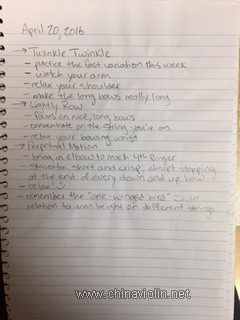 April 20, 2016
→ Twinkle Twinkle
- practice the fast variation this week
- watch your arm
- relax your shoulder
- make the long bows really long
→ Lightly Row
- focus on nice, long bows
- concentrate on the string you're on
- relax your bowing wrist
→ Perpetual Motion
- bring in elbow to reach 4th finger
- staccato: short and crisp, abrupt stopping
at the end of every down and up bow
- relax!
- remember the "one-winged bird" in
relation to arm height on different strings
www.chinaviolin.net